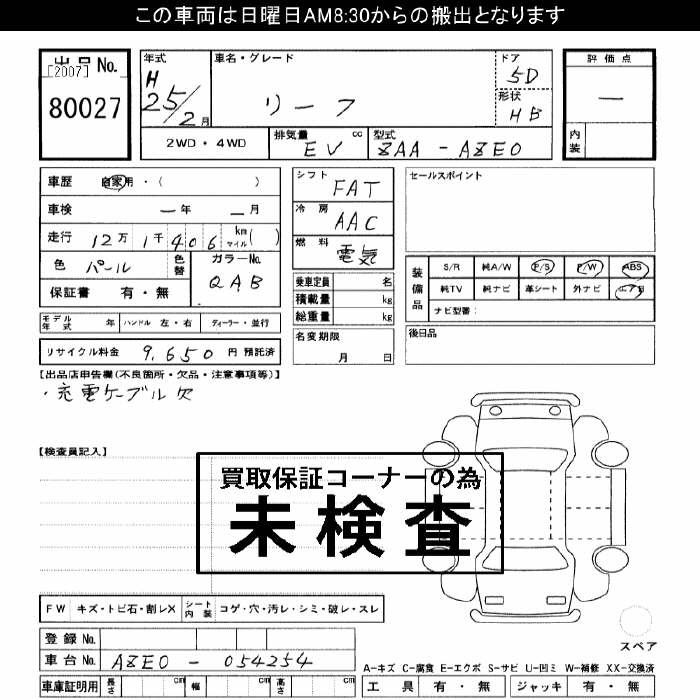 この車両は日曜日AM8:30からの搬出となります
出品No.
[2007]
80027
年式
H
25/2月
車名・グレード
リーフ
ドア
5D
形状
HB
評価点
—
内装
2WD・4WD
排気量 cc
EV
型式
ZAA-AZE0
車歴 自家用・( )
車検 —年 —月
走行 12万1千406 km マイル( )
色 パール
色替
カラーNo.
QAB
保証書 有・無
シフト
FAT
冷房
AAC
燃料
電気
乗車定員 名
積載量 kg
総重量 kg
名変期限
月 日
セールスポイント
装備品
S/R 純A/W P/S P/W ABS
純TV 純ナビ 革シート 外ナビ エアB
ナビ型番:
後日品
モデル年式 年 ハンドル 左・右 ディーラー・並行
リサイクル料金 9,650 円 預託済
【出品店申告欄(不良箇所・欠品・注意事項等)】
・充電ケーブル欠
【検査員記入】
買取保証コーナーの為
未検査
FW キズ・トビ石・割レX シート内装 コゲ・穴・汚レ・シミ・破レ・スレ
登録No.
車台No. AZE0-054254
車庫証明用 長さ cm 幅 cm 高さ cm
スペア
A-キズ C-腐食 E-エクボ S-サビ U-凹ミ W-補修 XX-交換済
工具 有・無 ジャッキ 有・無